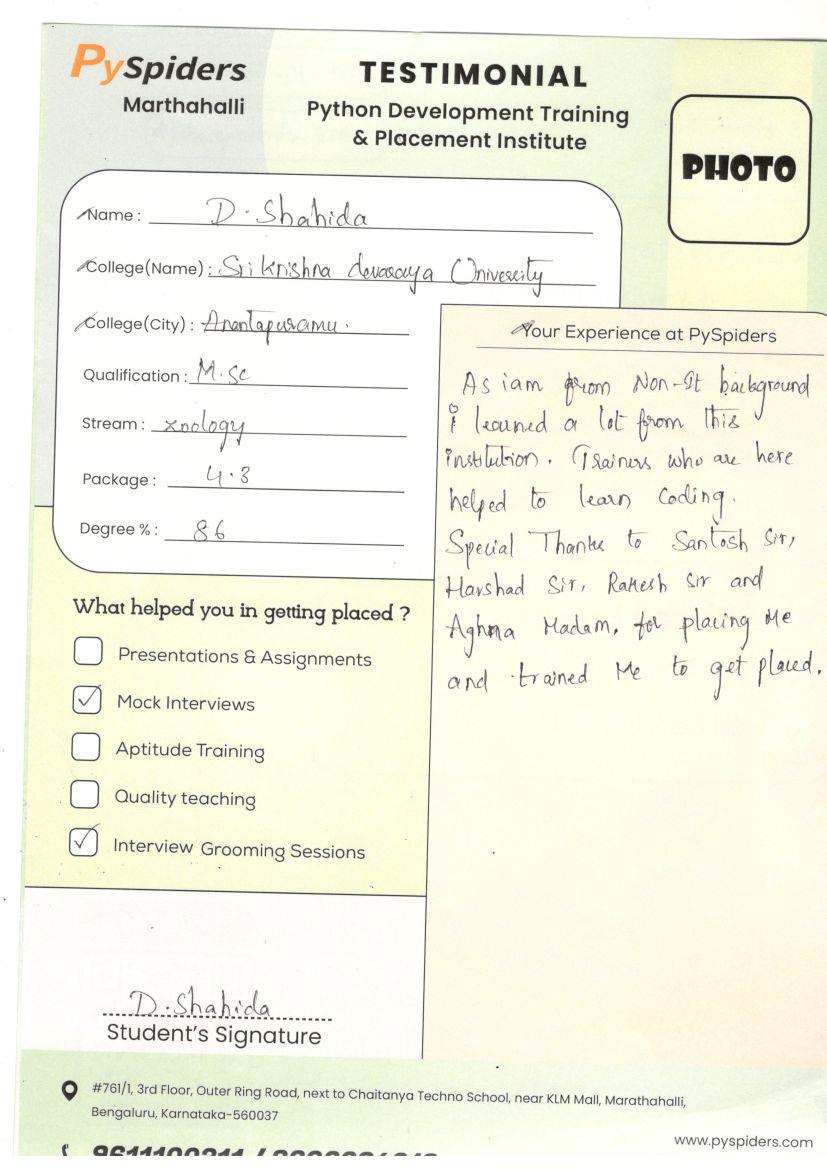 PySpiders
Marthahalli
TESTIMONIAL
Python Development Training
& Placement Institute
PHOTO
Name : D. Shahida
College(Name) : Sri Krishna devaraya Univesity
College(City) : Anantapuramu.
Qualification : M.Sc
Stream : zoology
Package : 4.3
Degree % : 86
Your Experience at PySpiders
As i am from Non-It background
i learned a lot from this
institution. Trainers who are here
helped to learn Coding.
Special Thanks to Santosh Sir,
Harshad Sir, Rakesh Sir and
Aghma Madam, for placing Me
and trained Me to get placed.
What helped you in getting placed ?
Presentations & Assignments
Mock Interviews
Aptitude Training
Quality teaching
Interview Grooming Sessions
D. Shahida
Student's Signature
#761/1, 3rd Floor, Outer Ring Road, next to Chaitanya Techno School, near KLM Mall, Marathahalli,
Bengaluru, Karnataka-560037
www.pyspiders.com